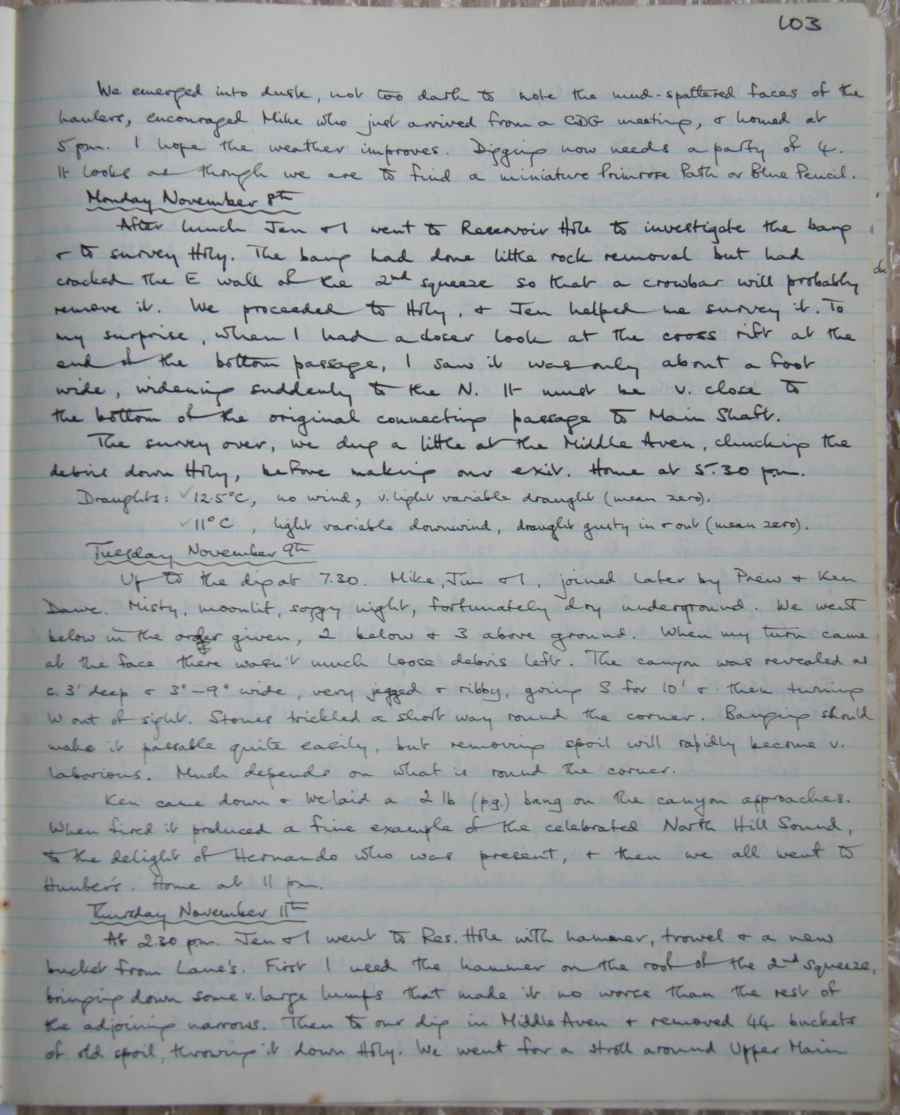 103
We emerged into dusk, not too dark to note the mud-spattered faces of the
haulers, encouraged Mike who just arrived from a CDG meeting, & homed at
5 pm. I hope the weather improves. Digging now needs a party of 4.
It looks as though we are to find a miniature Primrose Path or Blue Pencil.
Monday November 8th
After lunch Jen & I went to Reservoir Hole to investigate the bang
& to survey Hily. The bang had done little rock removal but had
cracked the E wall of the 2nd squeeze so that a crowbar will probably
remove it. We proceeded to Hily, & Jen helped me survey it. To
my surprise, when I had a closer look at the cross rift at the
end of the bottom passage, I saw it was only about a foot
wide, widening suddenly to the N. It must be v. close to
the bottom of the original connecting passage to Main Shaft.
The survey over, we dug a little at the Middle Aven, chucking the
debris down Hily, before making our exit. Home at 5.30 pm.
Draughts: ✓12.5°C, no wind, v. light variable draught (mean zero).
✓11°C, light variable downwind, draught gusty in & out (mean zero).
Tuesday November 9th
Up to the dig at 7.30. Mike, Jim & I, joined later by Prew & Ken
Dawe. Misty, moonlit, soggy night, fortunately dry underground. We went
below in the order given, 2 below & 3 above ground. When my turn came
at the face there wasn't much loose debris left. The canyon was revealed as
c. 3' deep & 3"-9" wide, very jagged & ribby, going S. for 10' & then turning
W out of sight. Stones trickled a short way round the corner. Banging should
make it passable quite easily, but removing spoil will rapidly become v.
laborious. Much depends on what is round the corner.
Ken came down & we laid a 2 lb (pg.) bang on the canyon approaches.
When fired it produced a fine example of the celebrated North Hill Sound,
to the delight of Hernando who was present, & then we all went to
Hunter's. Home at 11 pm.
Thursday November 11th
At 2.30 pm. Jen & I went to Res. Hole with hammer, trowel & a new
bucket from Lane's. First I used the hammer on the roof of the 2nd squeeze,
bringing down some v. large lumps that made it no worse than the rest of
the adjoining narrows. Then to our dig in Middle Aven & removed 44 buckets
of old spoil, throwing it down Hily. We went for a stroll around Upper Main